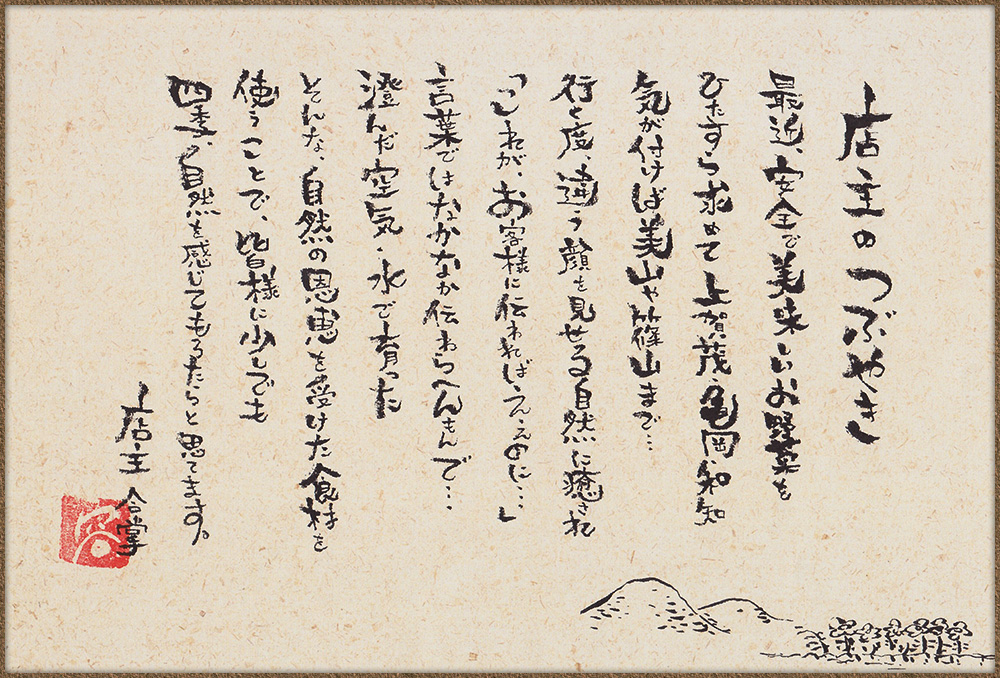 店主のつぶやき
最近、安全で美味しいお野菜を
ひたすら求めて上賀茂、亀岡、和知
気が付けば美山や篠山まで…
行く度、違う顔を見せる自然に癒され
「これが、お客様に伝わればええのに…」
言葉ではなかなか伝わらへんもんで…
澄んだ空気・水で育った
そんな、自然の恩恵を受けた食材を
使うことで、皆様に少しでも
四季、自然を感じてもろたらと思てます。
店主 合掌